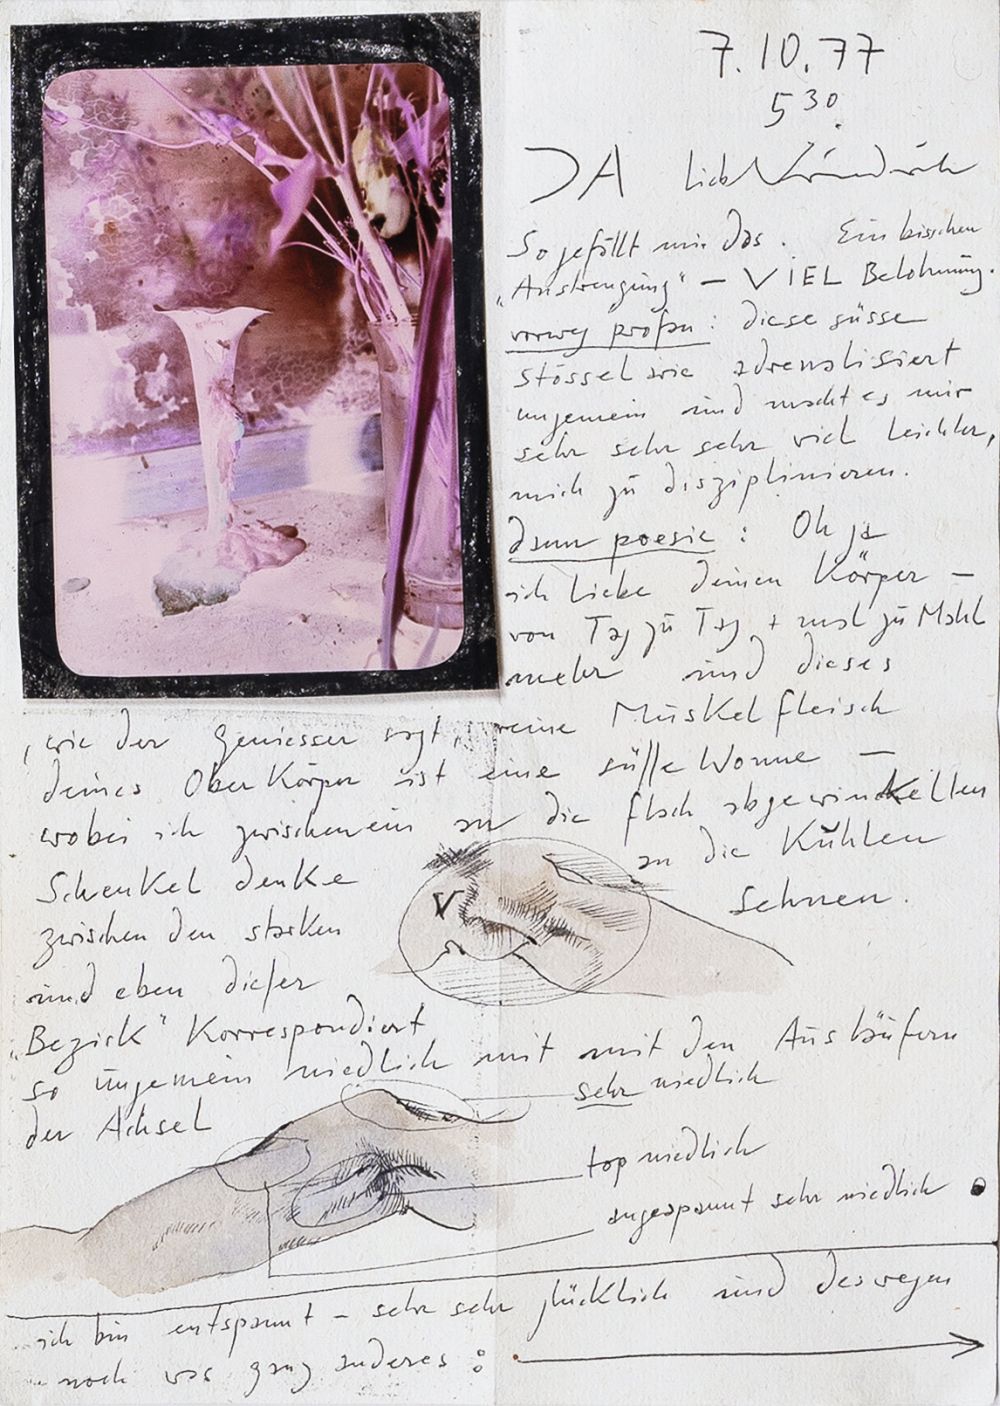 7.10.77
5 30.
JA lieb
So gefällt mir das. Ein bisschen
„Anstrengung" – VIEL Belohnung.
vorweg profan: diese süsse
stössel wie adrenalisiert
ungemein und macht es mir
sehr sehr sehr viel leichter,
mich zu disziplinieren.
dann poesie: Oh ja
ich liebe deinen Körper –
von Tag zu Tag + mal zu Mahl
mehr und dieses
, wie der geniesser sagt, reine Muskelfleisch
deines OberKörper ist eine süsse Wonne –
wobei ich zwischenein an die flach abgewinckelten
Schenkel denke an die Kühlen
zwischen den starken Sehnen.
und eben dieser
„Bezirk" Korrespondiert
V
so ungemein niedlich mit mit den Ausläufern
der Achsel
sehr niedlich
top niedlich
angespannt sehr niedlich
ich bin entspannt – sehr sehr glücklich und deswegen
noch was ganz anderes :